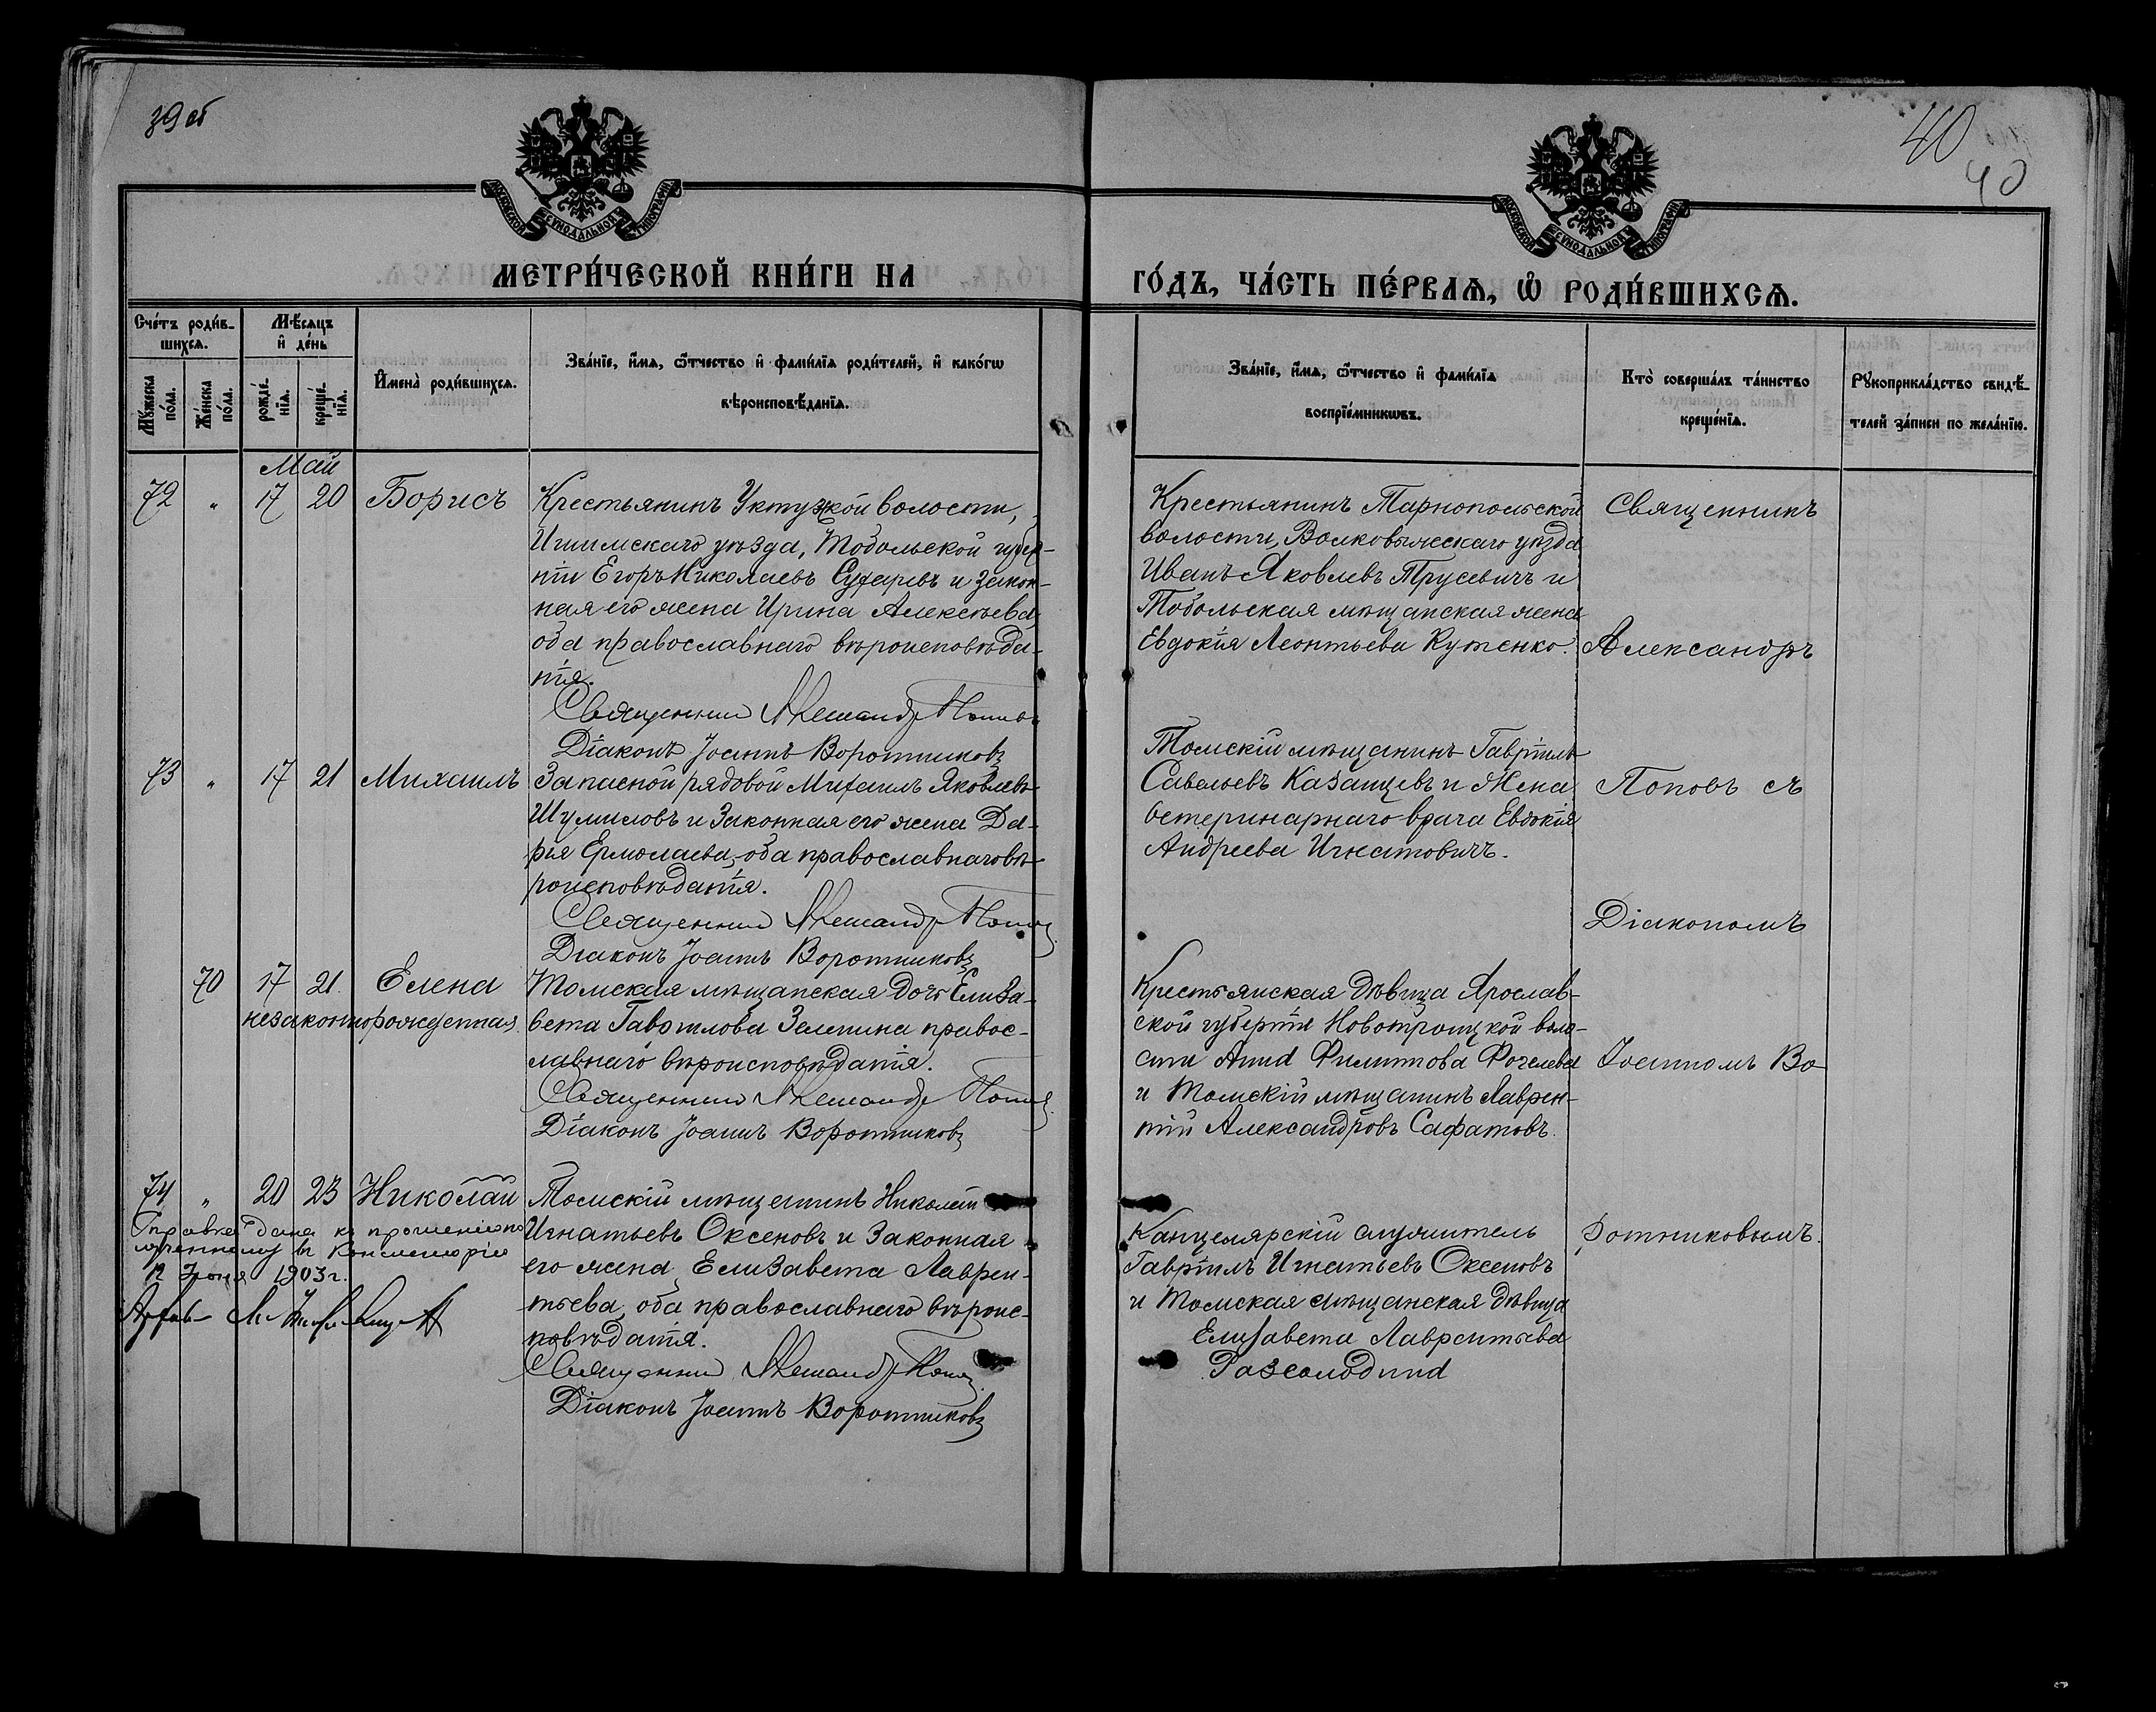 39 об
40
40
МОСКОВСКОЙ СѴНОДАЛЬНОЙ ТИПОГРАФІИ
МОСКОВСКОЙ СѴНОДАЛЬНОЙ ТИПОГРАФІИ
МЕТРИ́ЧЕСКОЙ КНИ́ГИ НА
ГО́ДЪ, ЧА́СТЬ ПЕ́РВАѦ, Ѽ РОДИ́ВШИХСѦ.
Сче́тъ роди́в-
шихсѧ.
Мꙋ́жеска
по́ла.
Же́нска
по́ла.
Мѣ́сѧцъ
и҆ де́нь
рожде́-
нїѧ.
креще́-
нїѧ.
И҆мена̀ роди́вшихсѧ.
Зва́нїе, и҆́мѧ, ѻ҆́тчество и҆ фами́лїѧ роди́телей, и҆ како́гѡ
вѣроисповѣ́данїѧ.
Зва́нїе, и҆́мѧ, ѻ҆́тчество и҆ фами́лїѧ
воспрїе́мникѡвъ.
Кто̀ соверша́лъ та́инство
креще́нїѧ.
Рꙋкоприкла́дство свидѣ́-
телей за́писи по жела́нїю.
Май
72 " 17 20 Борисъ
Крестьянинъ Уктузской волости,
Ишимскаго уѣзда, Тобольской губер-
ніи Егоръ Николаевъ Сухаревъ и закон-
ная его жена Ирина Алексѣева,
оба православнаго вѣроисповѣда-
нія.
Священникъ Александръ Поповъ
Діаконъ Іоаннъ Воротниковъ
Крестьянинъ Тарнопольской
волости, Волковыскаго уѣзда
Иванъ Яковлевъ Трусевичъ и
Тобольская мѣщанская жена
Евдокія Леонтьева Кутенко.
Священникъ
Александръ
73 " 17 21 Михаилъ
Запасной рядовой Михаилъ Яковлевъ
Шумиловъ и законная его жена Да-
рья Ермолаева, оба православнаго вѣ-
роисповѣданія.
Священникъ Александръ Поповъ
Діаконъ Іоаннъ Воротниковъ
Томскій мѣщанинъ Гавріилъ
Савельевъ Казанцевъ и Жена
ветеринарнаго врача Евдокія
Андреева Игнатовичъ.
Поповъ съ
Діакономъ
70 17 21. Елена
незаконнорожденная
Томская мѣщанская дочь Елиза-
вета Гавріилова Зеленина правос-
лавнаго вѣроисповѣданія.
Священникъ Александръ Поповъ
Діаконъ Іоаннъ Воротниковъ
Крестьянская дѣвица Ярослав-
ской губерніи Новотроицкой воло-
сти Анна Филиппова Фогелева
и Томскій мѣщанинъ Лаврен-
тій Александровъ Сафатовъ.
Іоанномъ Во-
74 " 20 23 Николай
Справка дана къ прошенію по-
лученному въ Консисторіи
12 Іюня 1903 г.
Томскій мѣщанинъ Николай
Игнатьевъ Оксеновъ и законная
его жена Елизавета Лаврен-
тьева, оба православнаго вѣроис-
повѣданія.
Священникъ Александръ Поповъ
Діаконъ Іоаннъ Воротниковъ
Канцелярскій служитель
Гавріилъ Игнатьевъ Оксеновъ
и Томская мѣщанская дѣвица
Елизавета Лаврентьева
Разсолодина
ротниковымъ.